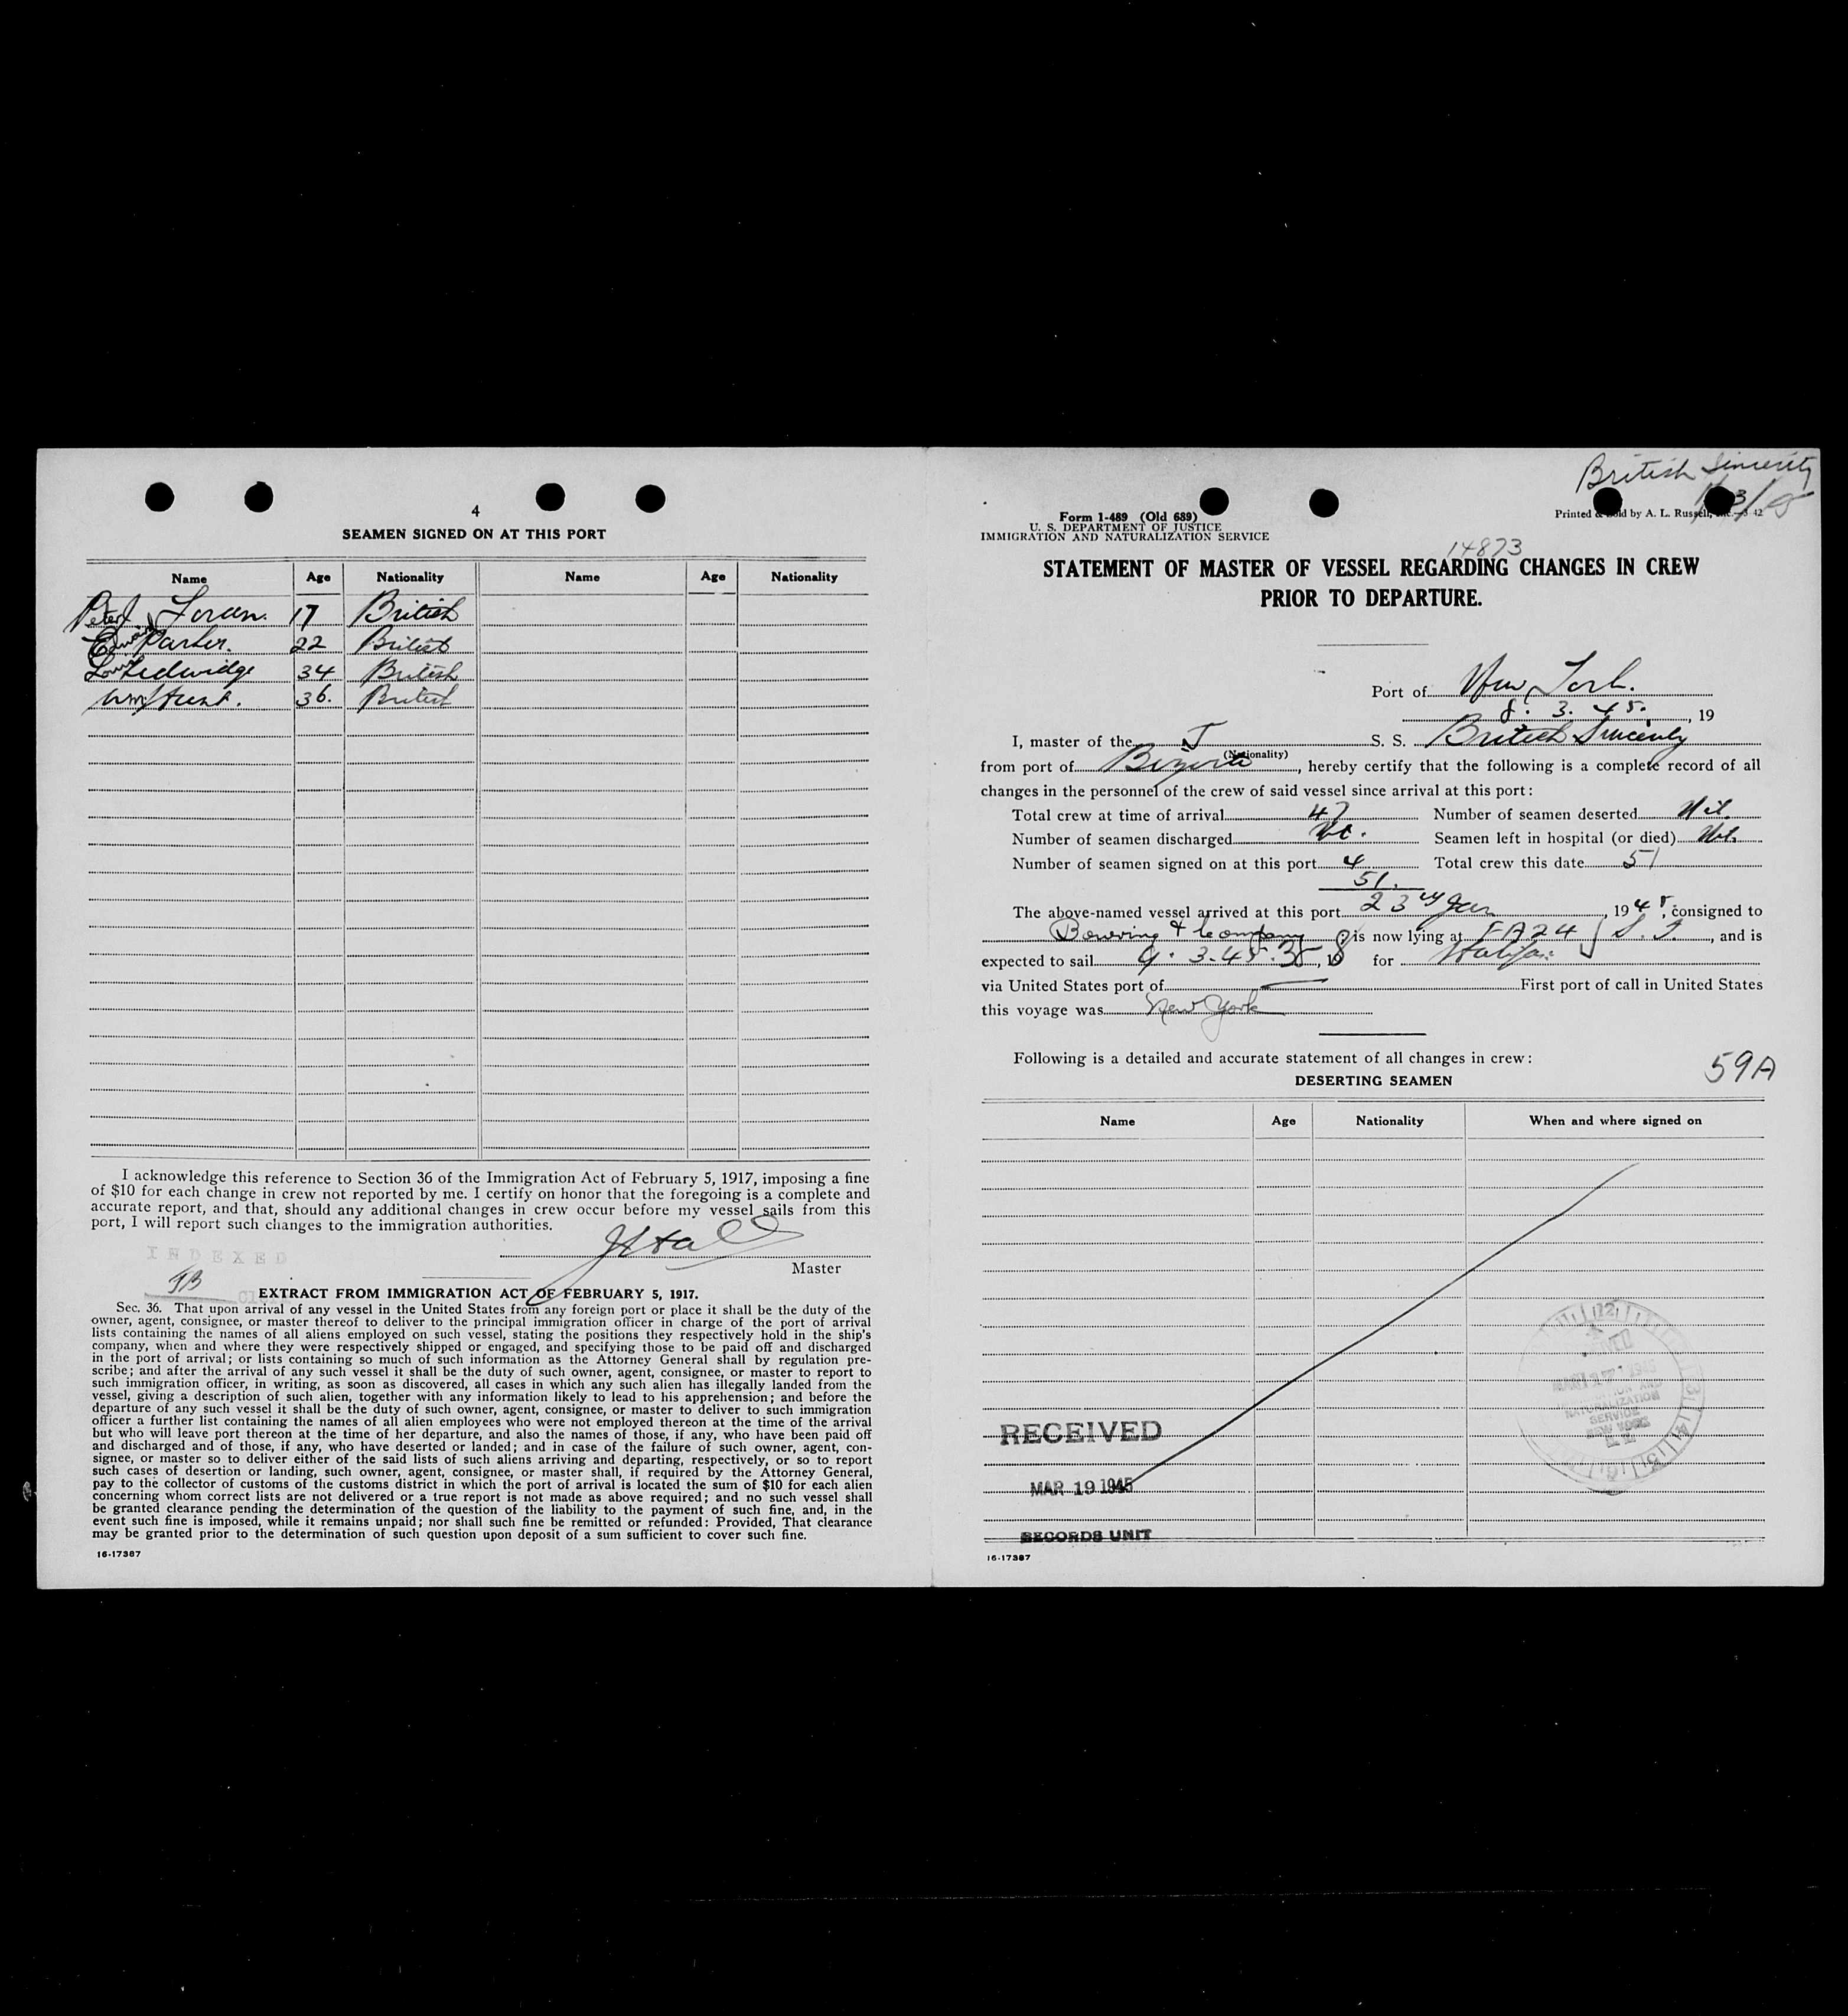 4
SEAMEN SIGNED ON AT THIS PORT
Name Age Nationality Name Age Nationality
Peter 17 British
Edward Parker. 22 British
Ledwidge 34 British
Wm Hunt. 36. British
I acknowledge this reference to Section 36 of the Immigration Act of February 5, 1917, imposing a fine
of $10 for each change in crew not reported by me. I certify on honor that the foregoing is a complete and
accurate report, and that, should any additional changes in crew occur before my vessel sails from this
port, I will report such changes to the immigration authorities.
INDEXED
Master
EXTRACT FROM IMMIGRATION ACT OF FEBRUARY 5, 1917.
Sec. 36. That upon arrival of any vessel in the United States from any foreign port or place it shall be the duty of the
owner, agent, consignee, or master thereof to deliver to the principal immigration officer in charge of the port of arrival
lists containing the names of all aliens employed on such vessel, stating the positions they respectively hold in the ship's
company, when and where they were respectively shipped or engaged, and specifying those to be paid off and discharged
in the port of arrival; or lists containing so much of such information as the Attorney General shall by regulation pre-
scribe; and after the arrival of any such vessel it shall be the duty of such owner, agent, consignee, or master to report to
such immigration officer, in writing, as soon as discovered, all cases in which any such alien has illegally landed from the
vessel, giving a description of such alien, together with any information likely to lead to his apprehension; and before the
departure of any such vessel it shall be the duty of such owner, agent, consignee, or master to deliver to such immigration
officer a further list containing the names of all alien employees who were not employed thereon at the time of the arrival
but who will leave port thereon at the time of her departure, and also the names of those, if any, who have been paid off
and discharged and of those, if any, who have deserted or landed; and in case of the failure of such owner, agent, con-
signee, or master so to deliver either of the said lists of such aliens arriving and departing, respectively, or so to report
such cases of desertion or landing, such owner, agent, consignee, or master shall, if required by the Attorney General,
pay to the collector of customs of the customs district in which the port of arrival is located the sum of $10 for each alien
concerning whom correct lists are not delivered or a true report is not made as above required; and no such vessel shall
be granted clearance pending the determination of the question of the liability to the payment of such fine, and, in the
event such fine is imposed, while it remains unpaid; nor shall such fine be remitted or refunded: Provided, That clearance
may be granted prior to the determination of such question upon deposit of a sum sufficient to cover such fine.
16-17387
British Sincerity
Form 1-489 (Old 689)
U. S. DEPARTMENT OF JUSTICE
IMMIGRATION AND NATURALIZATION SERVICE
Printed & Sold by A. L. Russell, Inc.—3 42
14873
STATEMENT OF MASTER OF VESSEL REGARDING CHANGES IN CREW
PRIOR TO DEPARTURE.
Port of New York.
8. 3. 45. , 19
I, master of the S. S. British Sincerity
(Nationality)
from port of Bizerta, hereby certify that the following is a complete record of all
changes in the personnel of the crew of said vessel since arrival at this port:
Total crew at time of arrival 47 Number of seamen deserted Nil.
Number of seamen discharged Nil. Seamen left in hospital (or died) Nil.
Number of seamen signed on at this port 4 Total crew this date 51
51.
The above-named vessel arrived at this port 23rd Jan, 1945, consigned to
Bowring & Company is now lying at 24 S. I., and is
expected to sail 9. 3. 45. for Halifax
via United States port of — First port of call in United States
this voyage was New York
Following is a detailed and accurate statement of all changes in crew:
59A
DESERTING SEAMEN
Name Age Nationality When and where signed on
RECEIVED
MAR 19 1945
RECORDS UNIT
NATURALIZATION
SERVICE
NEW YORK
N. Y.
16-17387